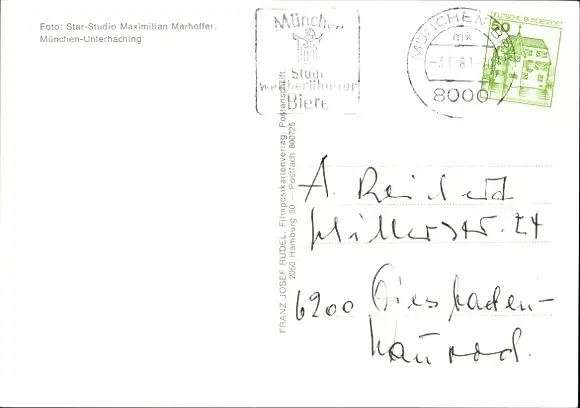 Foto: Star-Studio Maximilian Marhoffer,
München-Unterhaching
München
Stadt
weltberühmter
Biere
MÜNCHEN
mk
81
8000
DEUTSCHE BUNDESPOST
50
FRANZ JOSEF RÜDEL, Filmpostkartenverlag, Postanschrift:
2050 Hamburg 80 - Postfach 800725
A. Reichard
Müllerstr. 24
6200 Wiesbaden-
Naurod.